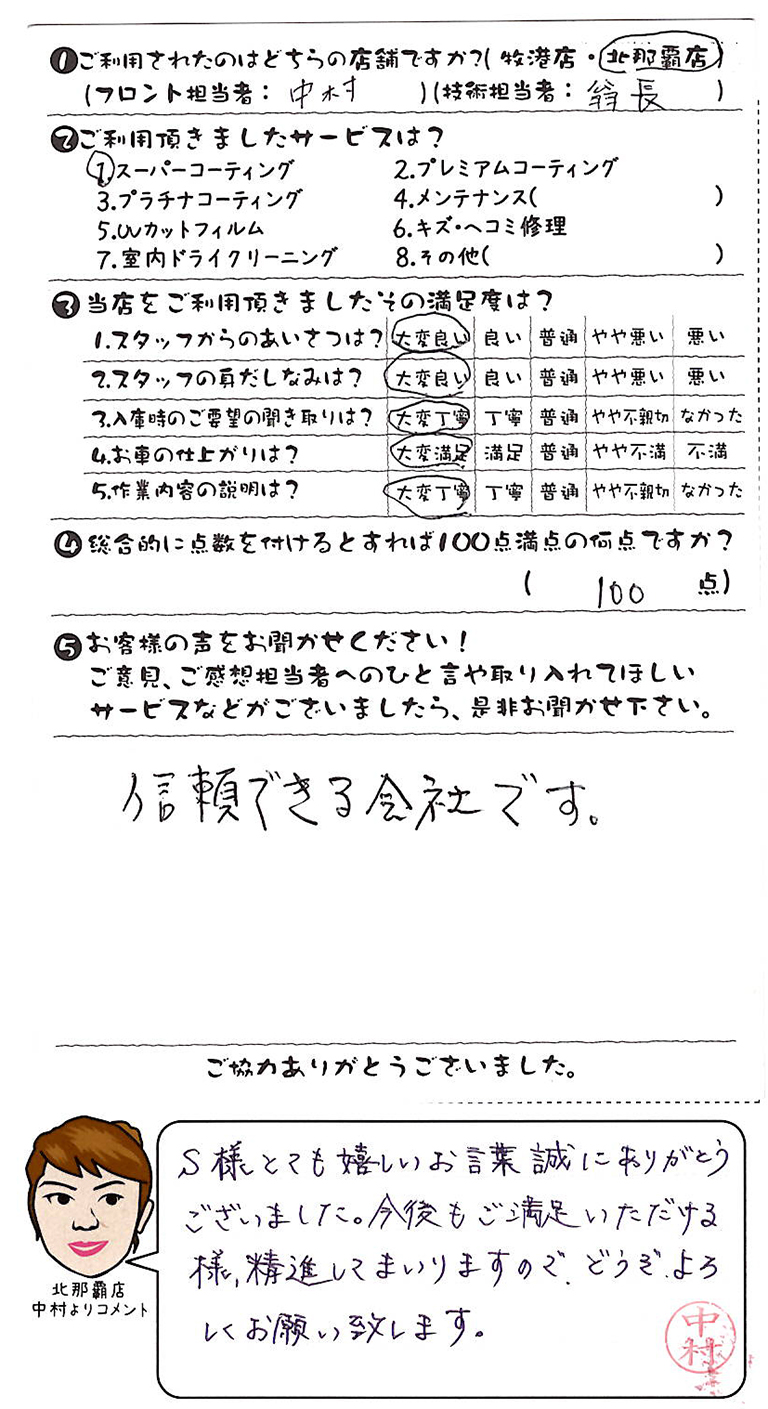 ❶ご利用されたのはどちらの店舗ですか?(牧港店・北那覇店)
(フロント担当者: 中村 )(技術担当者: 翁長 )
❷ご利用頂きましたサービスは?
1.スーパーコーティング 2.プレミアムコーティング
3.プラチナコーティング 4.メンテナンス( )
5.UVカットフィルム 6.キズ・ヘコミ修理
7.室内ドライクリーニング 8.その他( )
❸当店をご利用頂きましたその満足度は?
1.スタッフからのあいさつは? 大変良い 良い 普通 やや悪い 悪い
2.スタッフの身だしなみは? 大変良い 良い 普通 やや悪い 悪い
3.入庫時のご要望の聞き取りは? 大変丁寧 丁寧 普通 やや不親切 なかった
4.お車の仕上がりは? 大変満足 満足 普通 やや不満 不満
5.作業内容の説明は? 大変丁寧 丁寧 普通 やや不親切 なかった
❹総合的に点数を付けるとすれば100点満点の何点ですか?
( 100 点)
❺お客様の声をお聞かせください!
ご意見、ご感想担当者へのひと言や取り入れてほしい
サービスなどがございましたら、是非お聞かせ下さい。
信頼できる会社です。
ご協力ありがとうございました。
S様とても嬉しいお言葉誠にありがとう
ございました。今後もご満足いただける
様、精進してまいりますので、どうぞよろ
しくお願い致します。
中村
北那覇店
中村よりコメント